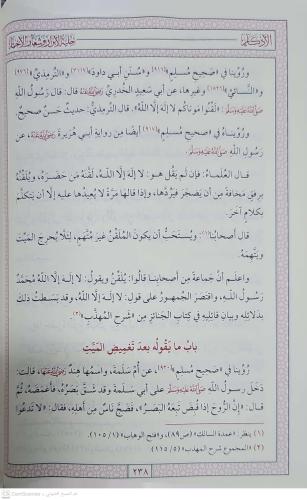 الأذكار
حلية الأبرار وشعار الأخيار
ورُوِّينا في «صَحِيحِ مُسْلِمٍ» [٩١٦] و«سُنَنِ أبي داودَ» [٣١١٧] و«التِّرمذيِّ» [٩٧٦]
و«النَّسائيِّ» [١٨٢٦] وغيرِها، عن أبي سَعِيدٍ الخُدْرِيِّ رَضِيَ اللَّهُ عَنْهُ قال: قال رَسُولُ اللَّهِ
صَلَّى اللَّهُ عَلَيْهِ وَسَلَّمَ: «لَقِّنُوا مَوْتاكُم لا إلَهَ إلَّا اللَّهُ». قال التِّرمذِيُّ: حديثٌ حسنٌ صحيحٌ.
ورُوِّيناهُ في «صحيحِ مُسْلِمٍ» [٩١٧] أيضًا مِن روايةِ أبي هُرَيرةَ رَضِيَ اللَّهُ عَنْهُ، عن
رَسُولِ اللَّهِ صَلَّى اللَّهُ عَلَيْهِ وَسَلَّمَ.
قال العُلماءُ: فإن لَم يَقُلْ هو: لا إلَهَ إلَّا اللَّهُ، لَقَّنَهُ مَن حَضَرَهُ، ويُلَقِّنُهُ
بِرِفقٍ مَخافةَ مِن أن يَضجَرَ فيَرُدَّها، وإذا قالها مَرَّةً لا يُعِيدُها عليهِ إلَّا أن يَتكلَّمَ
بكلامٍ آخَرَ.
قال أصحابُنا(١): ويُستَحَبُّ أن يكونَ المُلَقِّنُ غيرَ مُتَّهَمٍ، لِئلَّا يُحرِجَ المَيِّتَ
ويَتَّهِمَهُ.
واعلَم أنَّ جماعةً مِن أصحابِنا قالُوا: يُلَقَّنُ ويقولُ: لا إلَهَ إلَّا اللَّهُ مُحمَّدٌ
رَسُولُ اللَّهِ، واقتَصَرَ الجُمهورُ على قولِ: لا إلَهَ إلَّا اللَّهُ، وقد بَسَطتُ ذلك
بدَلائلِهِ وبيانِ قائِلِيهِ في كِتابِ الجَنائزِ مِن «شَرحِ المُهذَّبِ»(٢).
بابُ ما يَقُولُه بعدَ تَغمِيضِ المَيِّتِ
رُوِّينا في «صحيحِ مُسْلِمٍ» [٩٢٠]، عن أمِّ سَلَمةَ، واسمُها هِندٌ رَضِيَ اللَّهُ عَنْهَا، قالت:
دَخَلَ رسولُ اللَّهِ صَلَّى اللَّهُ عَلَيْهِ وَسَلَّمَ على أبي سَلَمةَ وقد شَقَّ بَصَرُهُ، فأغمَضَهُ، ثُمَّ
قال: «إنَّ الرُّوحَ إذا قُبِضَ تَبِعَهُ البَصَرُ»، فضَجَّ ناسٌ مِن أهلِهِ، فقال: «لا تَدعُوا
(١) ينظر: «عمدة السالك» (ص٨٩)، و«فتح الوهاب» (١/ ١٠٥).
(٢) «المجموع شرح المهذب» (٥/ ١١٥)
٢٣٨
CamScanner